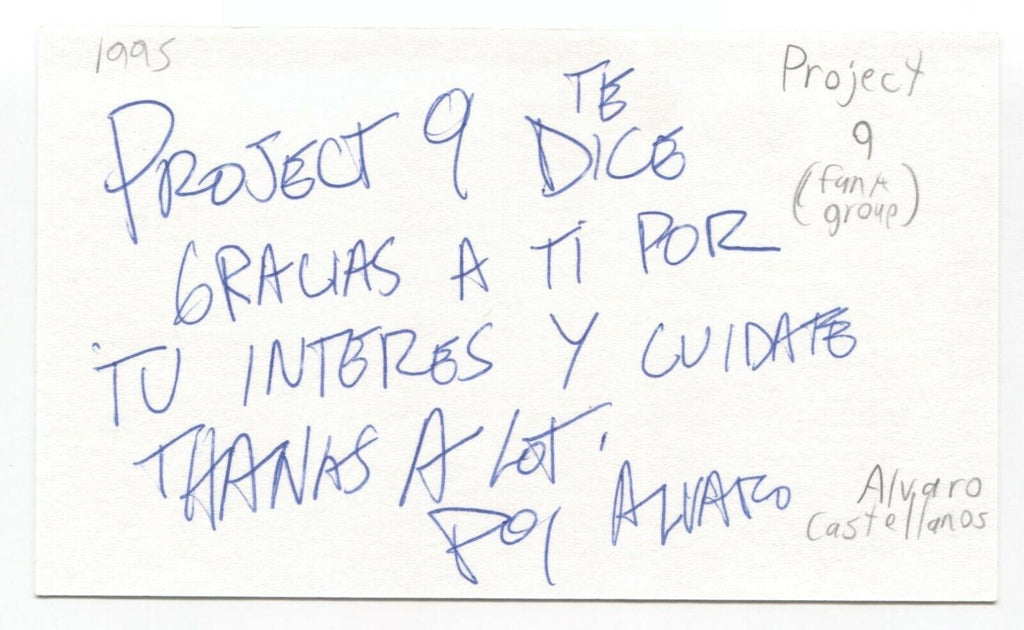 1995
Project
9
(funk
group)
PROJECT 9 TE DICE
GRACIAS A TI POR
TU INTERES Y CUIDATE
THANKS A LOT.
ALVARO
Alvaro
Castellanos